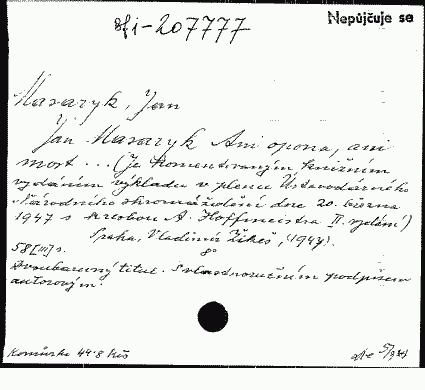 Nepůjčuje se
sf i-207777
Masaryk, Jan
Jan Masaryk Ani opona, ani
most ... (Je komentovaným knižním
vydáním výkladu v plenu Ústavodárného
Národního shromáždění dne 20. března
1947 s kresbou A. Hoffmeistra II. vydání)
Praha, Vladimír Žikeš, (1947).
8°
58 [III] s.
Dvoubarevný titul. S vlastnoručním podpisem
autorovým.
49.8